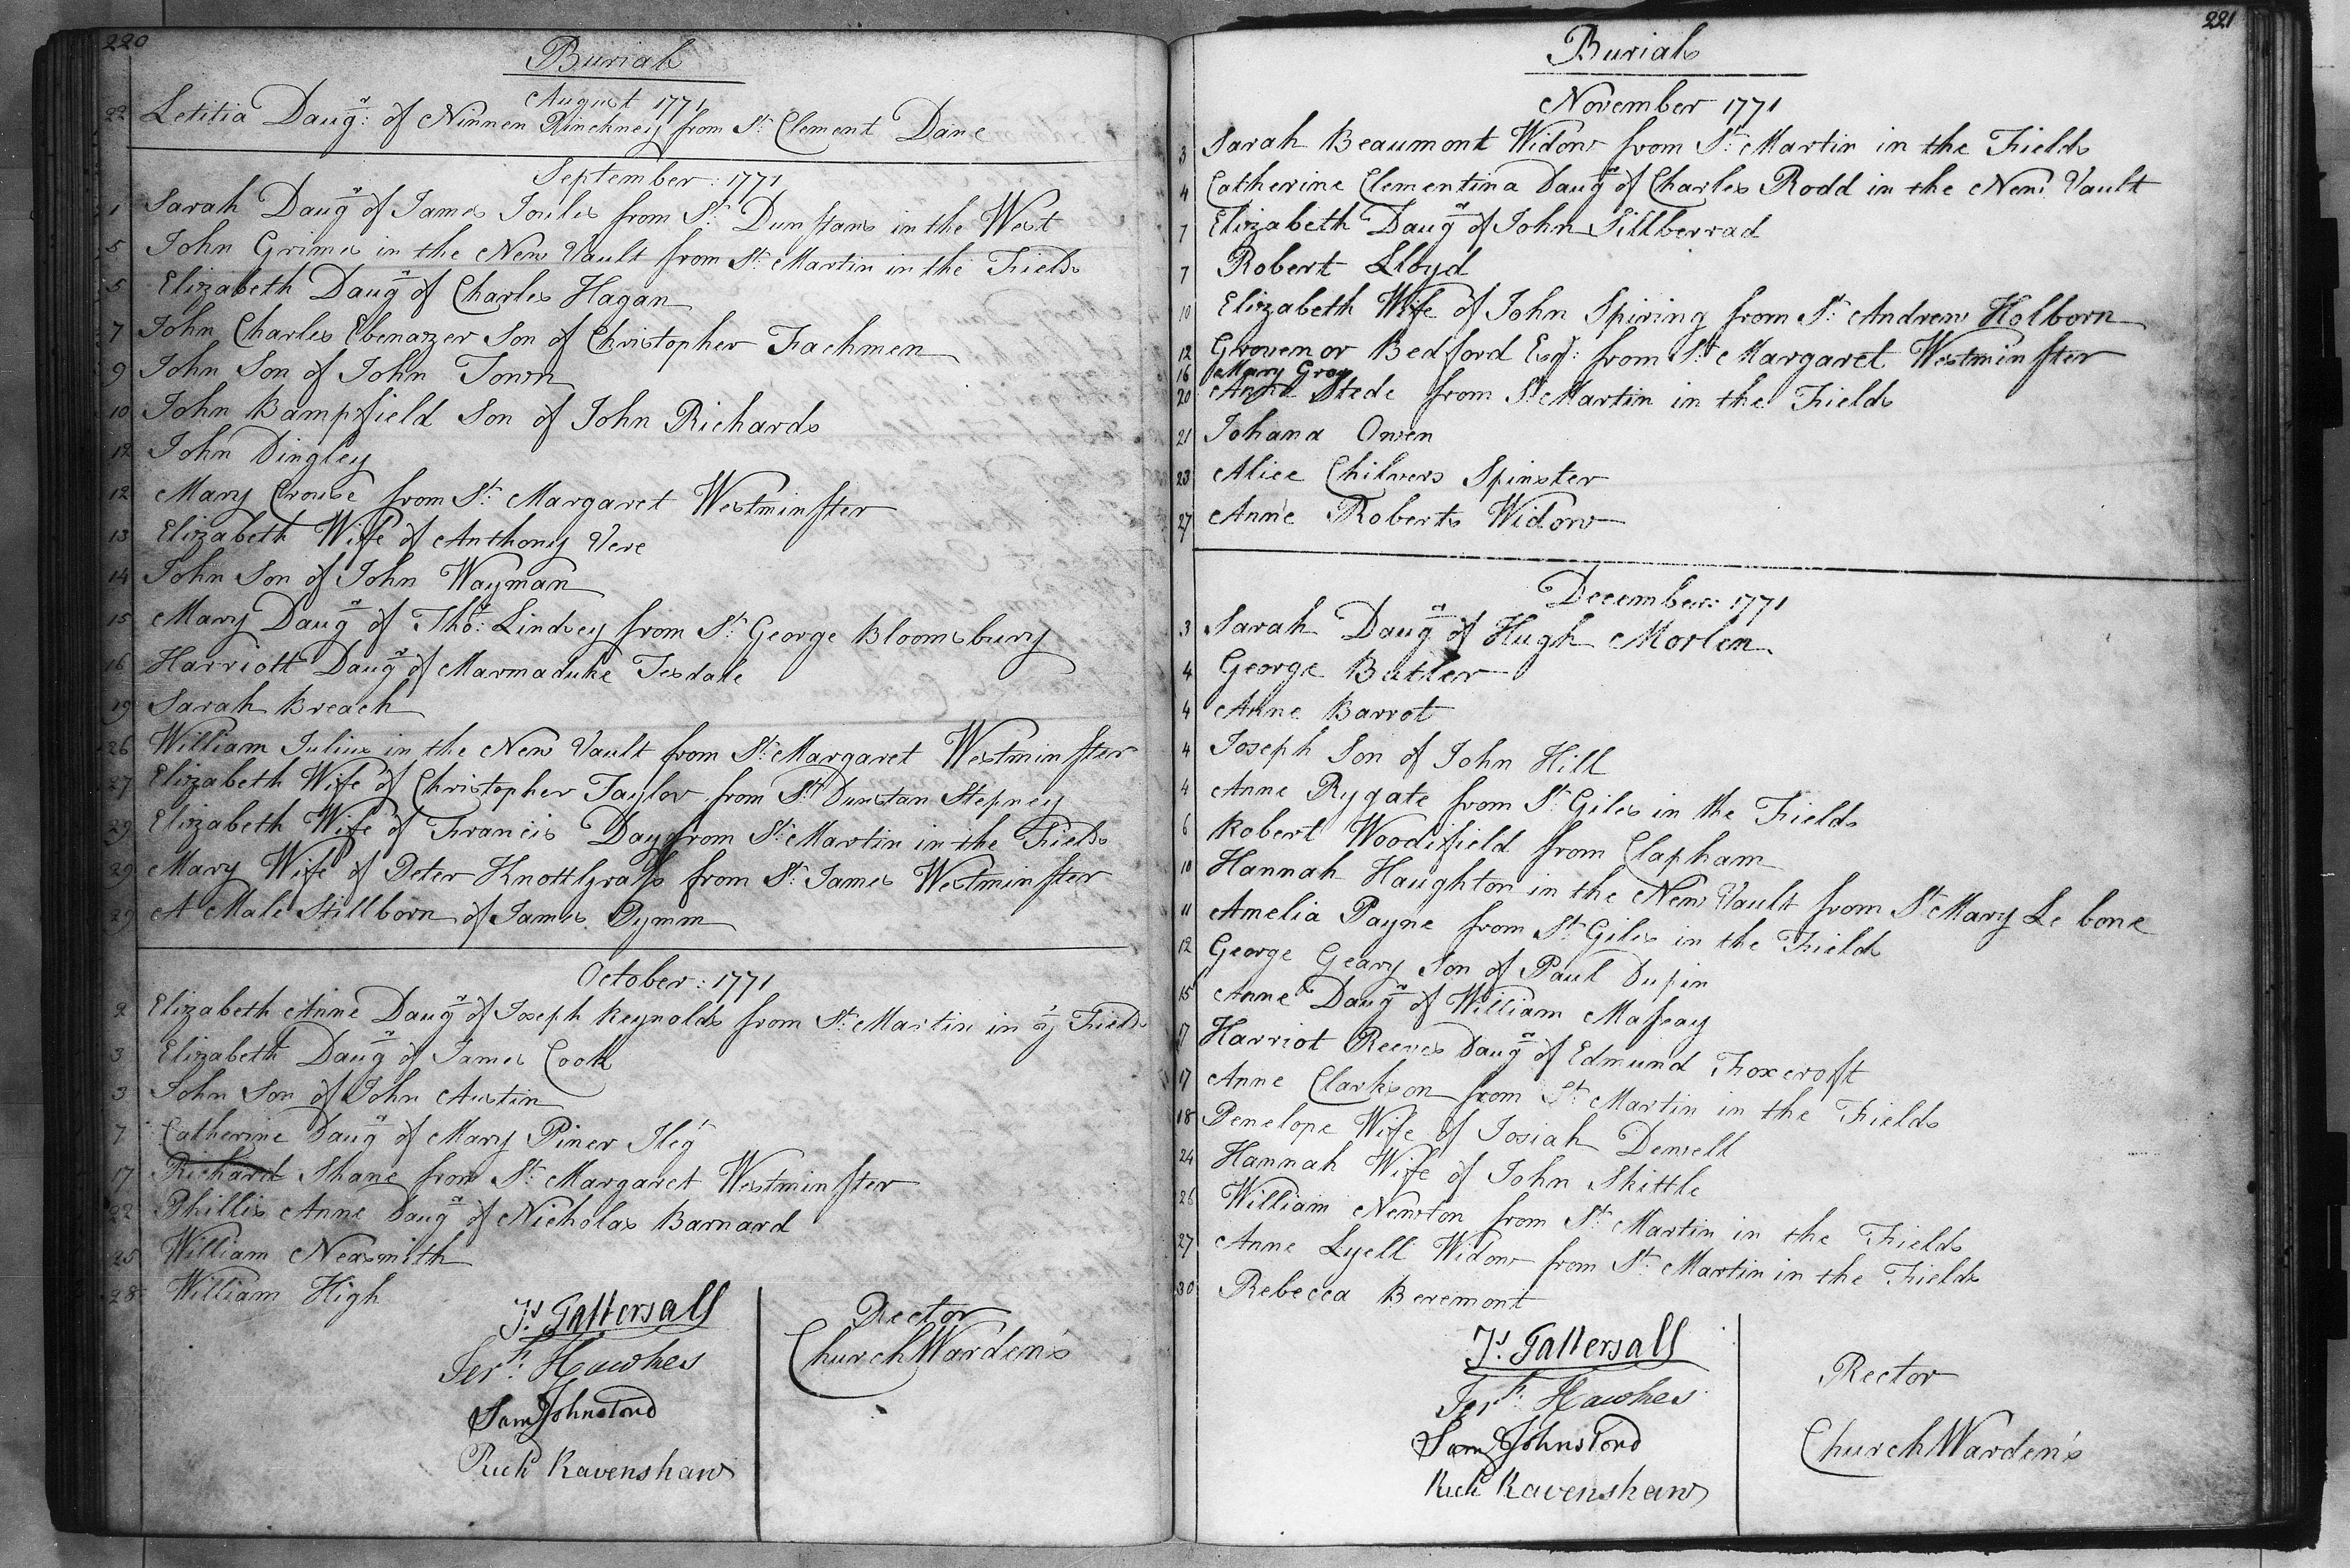 220
Burials
August 1771
22 Letitia Daugr: of Ninnen Pinckney from St: Clement Dane
September: 1771
1 Sarah Daugr of James Joules from St: Dunstans in the West
5 John Grimes in the New Vault from St: Martin in the Fields
5 Elizabeth Daugr of Charles Hagan
7 John Charles Ebenazer Son of Christopher Frachmen
9 John Son of John Town
10 John Bampfield Son of John Richards
12 John Dingley
12 Mary Crouse from St: Margaret Westminster
13 Elizabeth Wife of Anthony Vere
14 John Son of John Wayman
15 Mary Daugr of Thos: Lindsey from St: George Bloomsbury
16 Harriott Daugr of Marmaduke Tesdale
19 Sarah Breach
26 William Julius in the New Vault from St: Margaret Westminster
27 Elizabeth Wife of Christopher Taylor from St: Dunstan Stepney
29 Elizabeth Wife of Francis Day from St: Martin in the Fields
29 Mary Wife of Peter Knottgrass from St: James Westminster
29 A Male Stillborn of James Pymm
October: 1771
2 Elizabeth Anne Daugr of Joseph Reynolds from St: Martin in ye Fields
3 Elizabeth Daugr of James Cook
3 John Son of John Austin
7 Catherine Daugr of Mary Piner Ileg
17 Richard Shane from St: Margaret Westminster
22 Phillis Anne Daugr of Nicholas Barnard
25 William Neasmith
28 William High
Js. Tattersall Rector
Jerh: Hawkes ChurchWarden's
Sam Johnston
Richd Ravenshaw
221
Burials
November 1771
3 Sarah Beaumont Widow from St: Martin in the Fields
4 Catherine Clementina Daugr of Charles Rodd in the New Vault
7 Elizabeth Daugr of John Sillberrad
7 Robert Lloyd
10 Elizabeth Wife of John Spiring from St: Andrew Holborn
12 Grovenor Bedford Esqr: from St: Margaret Westminster
16 Mary Gray
20 Anne Stede from St: Martin in the Fields
21 Johana Owen
23 Alice Chilvers Spinster
27 Anne Roberts Widow
December: 1771
3 Sarah Daugr of Hugh Morlen
4 George Butler
4 Anne Barrot
4 Joseph Son of John Hill
4 Anne Rygate from St: Giles in the Fields
6 Robert Woodifield from Clapham
10 Hannah Haughton in the New Vault from St: Mary Le bone
11 Amelia Payne from St: Giles in the Fields
12 George Geary Son of Paul Dupin
15 Anne Daugr of William Massay
17 Harriot Reeves Daugr of Edmund Foxcroft
17 Anne Clarkson from St: Martin in the Fields
18 Penelope Wife of Josiah Dewell
24 Hannah Wife of John Skittle
26 William Newton from St: Martin in the Fields
27 Anne Lyell Widow from St: Martin in the Fields
30 Rebecca Beremont
Js. Tattersall Rector
Jerh: Hawkes
Sam Johnston ChurchWarden's
Richd Ravenshaw